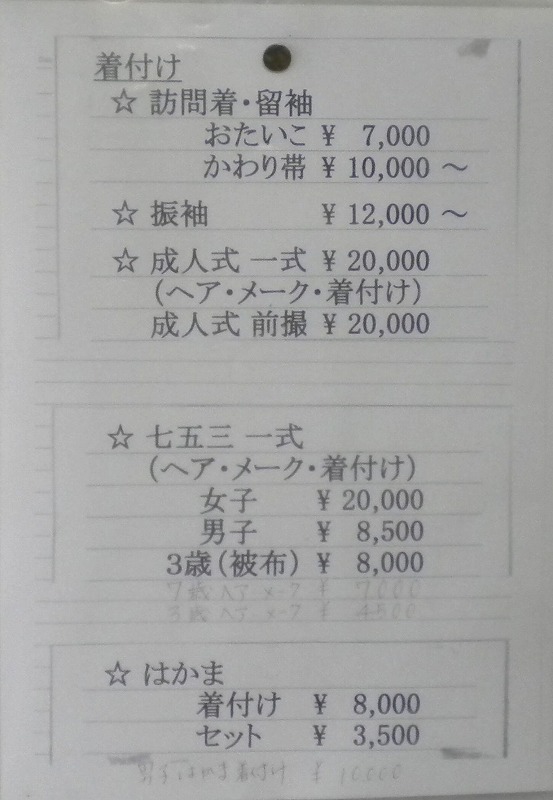 着付け
☆ 訪問着・留袖
おたいこ ¥ 7,000
かわり帯 ¥ 10,000 ～
☆ 振袖 ¥ 12,000 ～
☆ 成人式 一式 ¥ 20,000
（ヘア・メーク・着付け）
成人式 前撮 ¥ 20,000
☆ 七五三 一式
（ヘア・メーク・着付け）
女子 ¥ 20,000
男子 ¥ 8,500
３歳（被布） ¥ 8,000
7歳 ヘア メーク ¥ 7000
3歳 ヘア メーク ¥ 4500
☆ はかま
着付け ¥ 8,000
セット ¥ 3,500
男子はかま着付け ¥ 10000